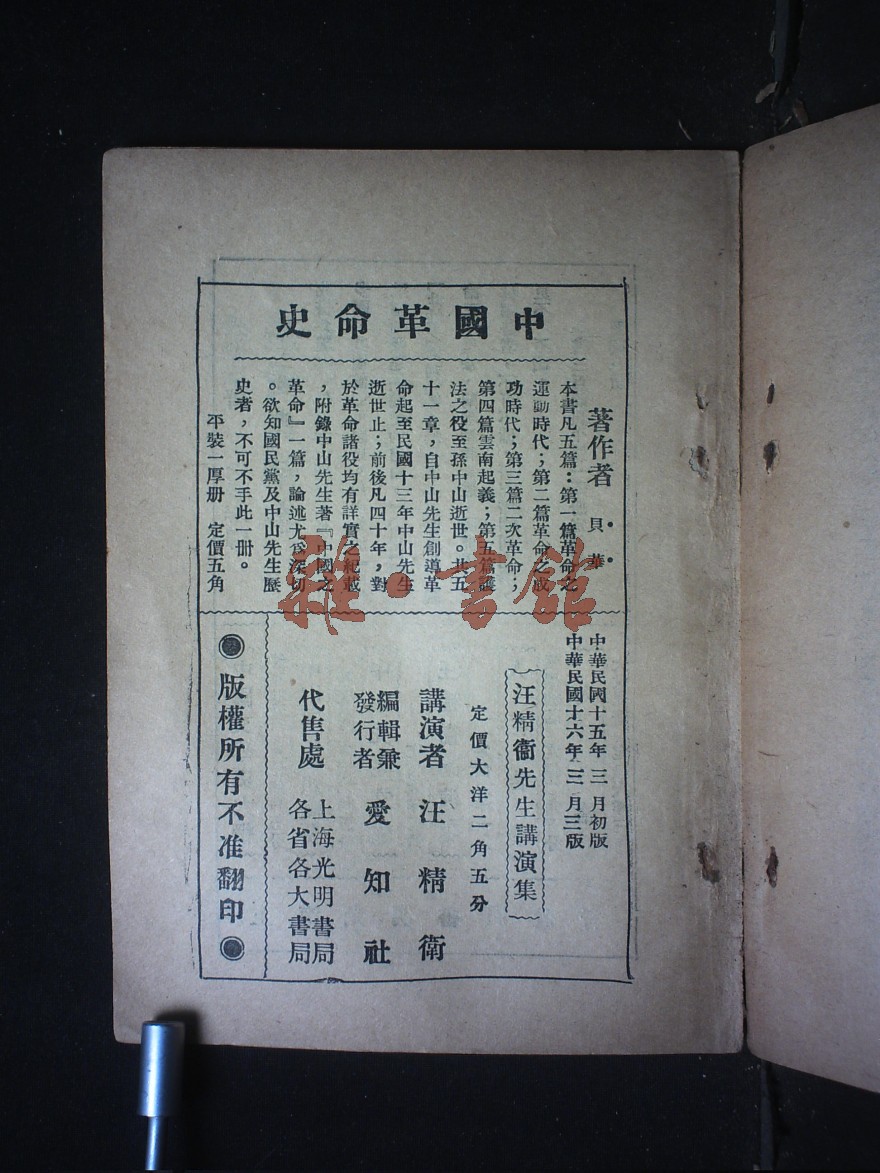 中國革命史
著作者 貝華
本書凡五篇：第一篇革命之
運動時代；第二篇革命之成
功時代；第三篇二次革命；
第四篇雲南起義；第五篇護
法之役至孫中山逝世。共五
十一章，自中山先生創導革
命起至民國十三年中山先生
逝世止；前後凡四十年，對
於革命諸役均有詳實之紀載
，附錄中山先生著『中國之
革命』一篇，論述尤為深切
。欲知國民黨及中山先生歷
史者，不可不手此一冊。
平裝一厚册 定價五角
中華民國十五年三月初版
中華民國十六年三月三版
汪精衞先生講演集
定價大洋二角五分
講演者 汪精衛
編輯兼
發行者 愛知社
代售處 上海光明書局
各省各大書局
●版權所有不准翻印●
雜·書館